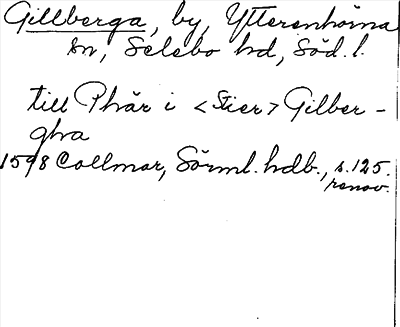 Gillberga, by, Ytterenhörna
sn, Selebo hd, Söd. l.
till Phär i <Stier> Gilber-
gha
1598 Collmar, Sörml. hdb., s. 125.
renov.